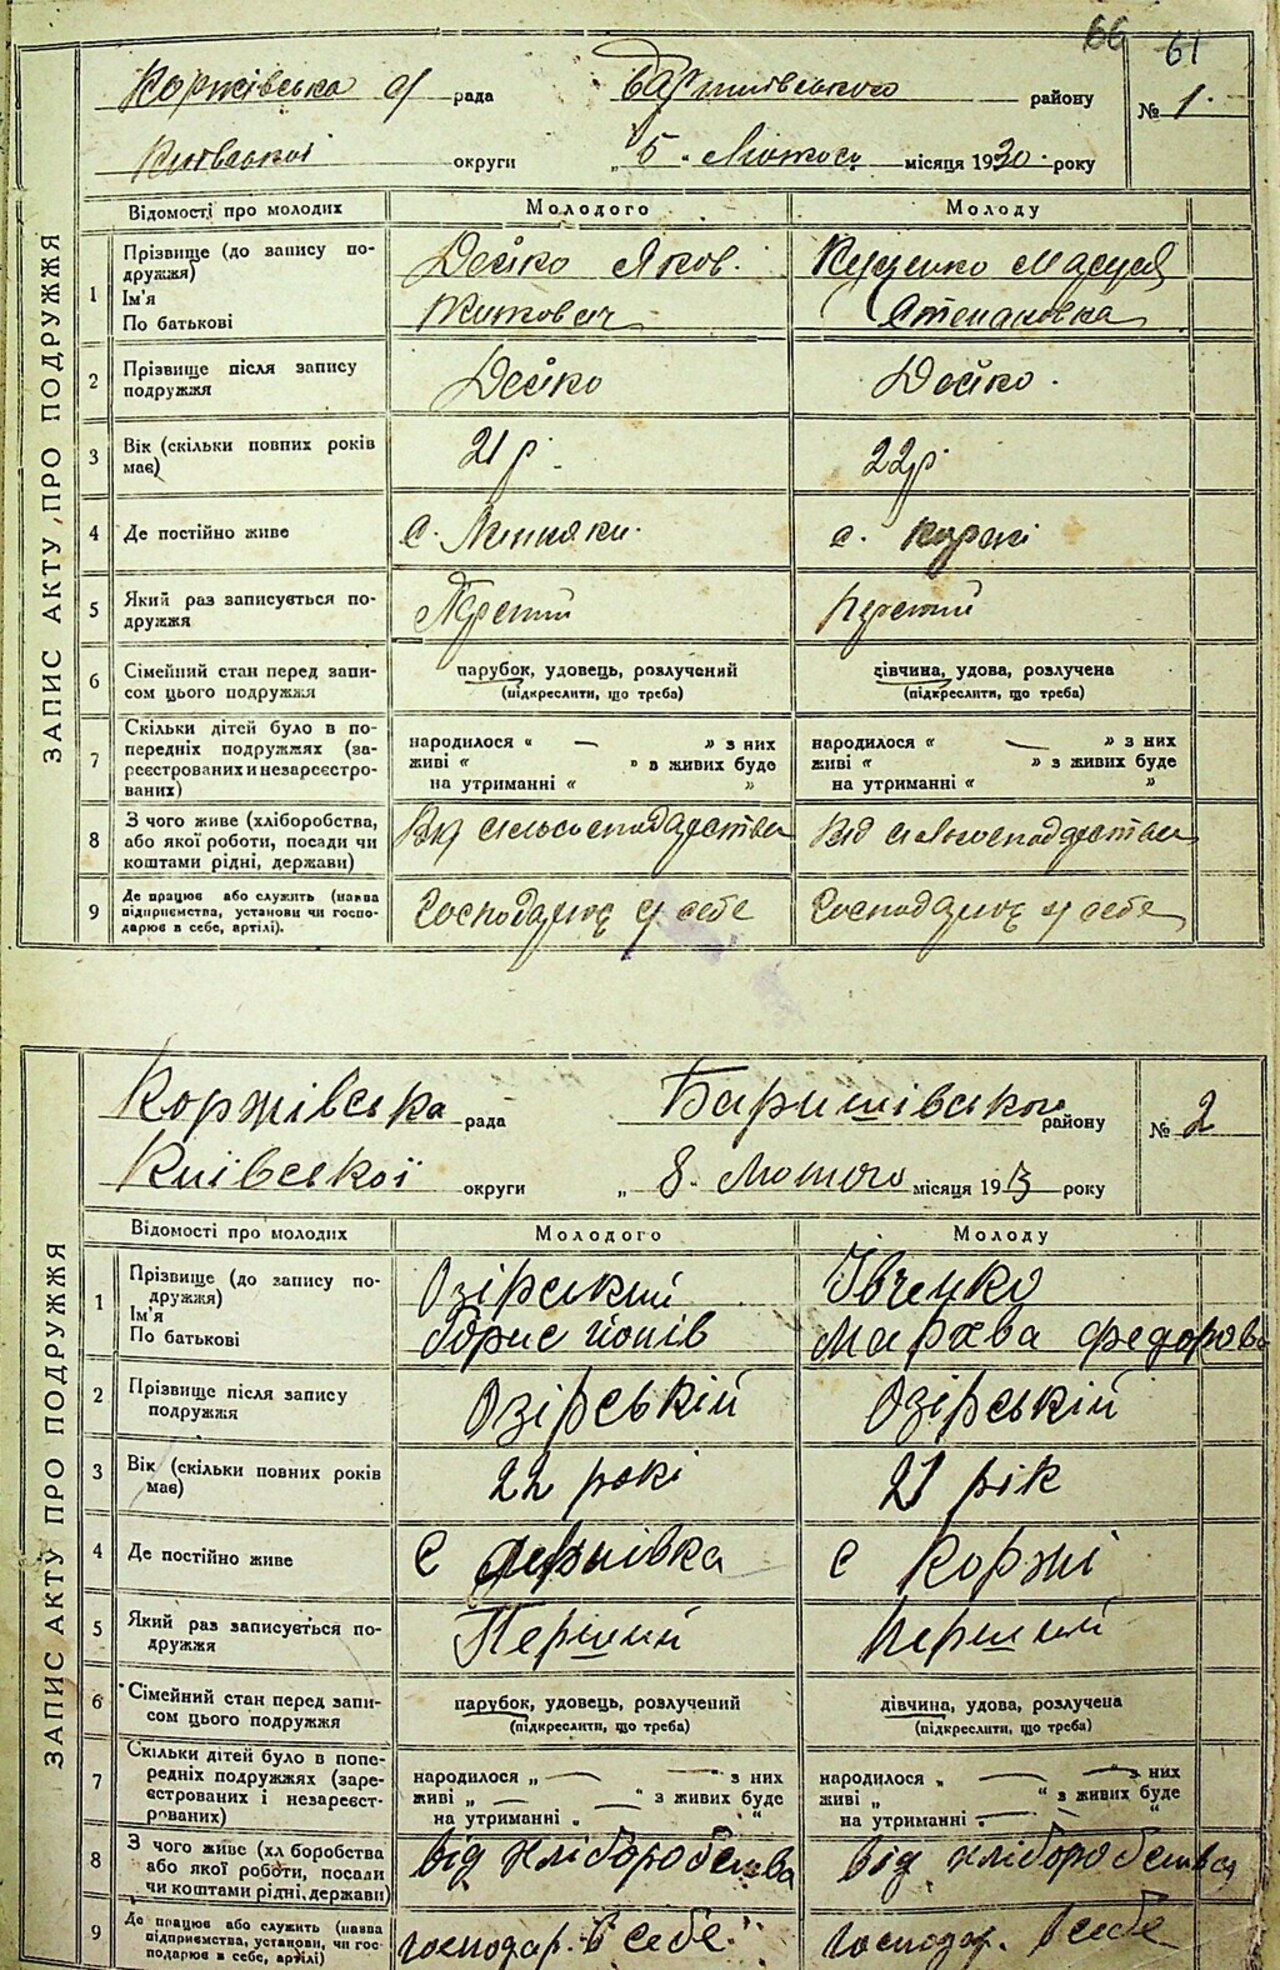 66 61
Коржівська с/ рада Баришівського району № 1.
Київської округи „ 5 " Лютого місяця 1930. року
ЗАПИС АКТУ ПРО ПОДРУЖЖЯ
Відомості про молодих Молодого Молоду
1 Прізвище (до запису по-
дружжя)
Ім'я
По батькові
Дейко Яков.
Титович
Куценко Маруся
Степановна
2 Прізвище після запису
подружжя
Дейко Дейко.
3 Вік (скільки повних років
має)
21 р. 22 р.
4 Де постійно живе с. с. Коржі
5 Який раз записується по-
дружжя
Перший Перший
6 Сімейний стан перед запи-
сом цього подружжя
парубок, удовець, розлучений
(підкреслити, що треба)
дівчина, удова, розлучена
(підкреслити, що треба)
7 Скільки дітей було в по-
передніх подружжях (за-
реєстрованих и незареєстро-
ваних)
народилося « — » з них
живі « » в живих буде
на утриманні « »
народилося « — » з них
живі « » з живих буде
на утриманні « »
8 З чого живе (хліборобства,
або якої роботи, посади чи
коштами рідні, держави)
Від сільсогосподарства Від сільгосподарства
9 Де працює або служить (назва
підприємства, установи чи госпо-
дарює в себе, артілі).
Господарює у себе Господарює у себе
Коржівська рада Баришівського району № 2
Київської округи „ 8 " Лютого місяця 193 року
ЗАПИС АКТУ ПРО ПОДРУЖЖЯ
Відомості про молодих Молодого Молоду
1 Прізвище (до запису по-
дружжя)
Ім'я
По батькові
Озірський
борис йопів
Івченко
Мархва федорова
2 Прізвище після запису
подружжя
Озірський Озірський
3 Вік (скільки повних років
має)
22 рокі 21 рік
4 Де постійно живе с с Коржі
5 Який раз записується по-
дружжя
Перший Перший
6 Сімейний стан перед запи-
сом цього подружжя
парубок, удовець, розлучений
(підкреслити, що треба)
дівчина, удова, розлучена
(підкреслити, що треба)
7 Скільки дітей було в попе-
редніх подружжях (заре-
єстрованих і незареєст-
рованих)
народилося „ — — " з них
живі „ — — " з живих буде
на утриманні „ "
народилося „ — — " з них
живі „ " з живих буде
на утриманні — "
8 З чого живе (хл боробства
або якої роботи, посади
чи коштами рідні, держави)
від хліборобства від хліборобства
9 Де працює або служить (назва
підприємства, установи, чи гос-
подарює в себе, артілі)
господар. в себе господар. в себе